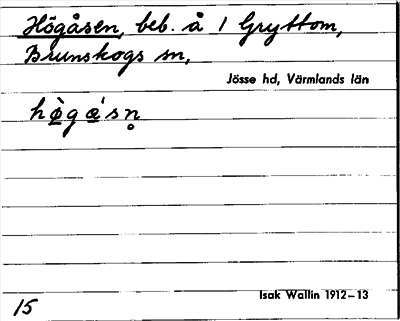 Högåsen, beb. å 1 Gryttom,
Brunskogs sn,
Jösse hd, Värmlands län
hø̀gǽsn̥
Isak Wallin 1912–13
15